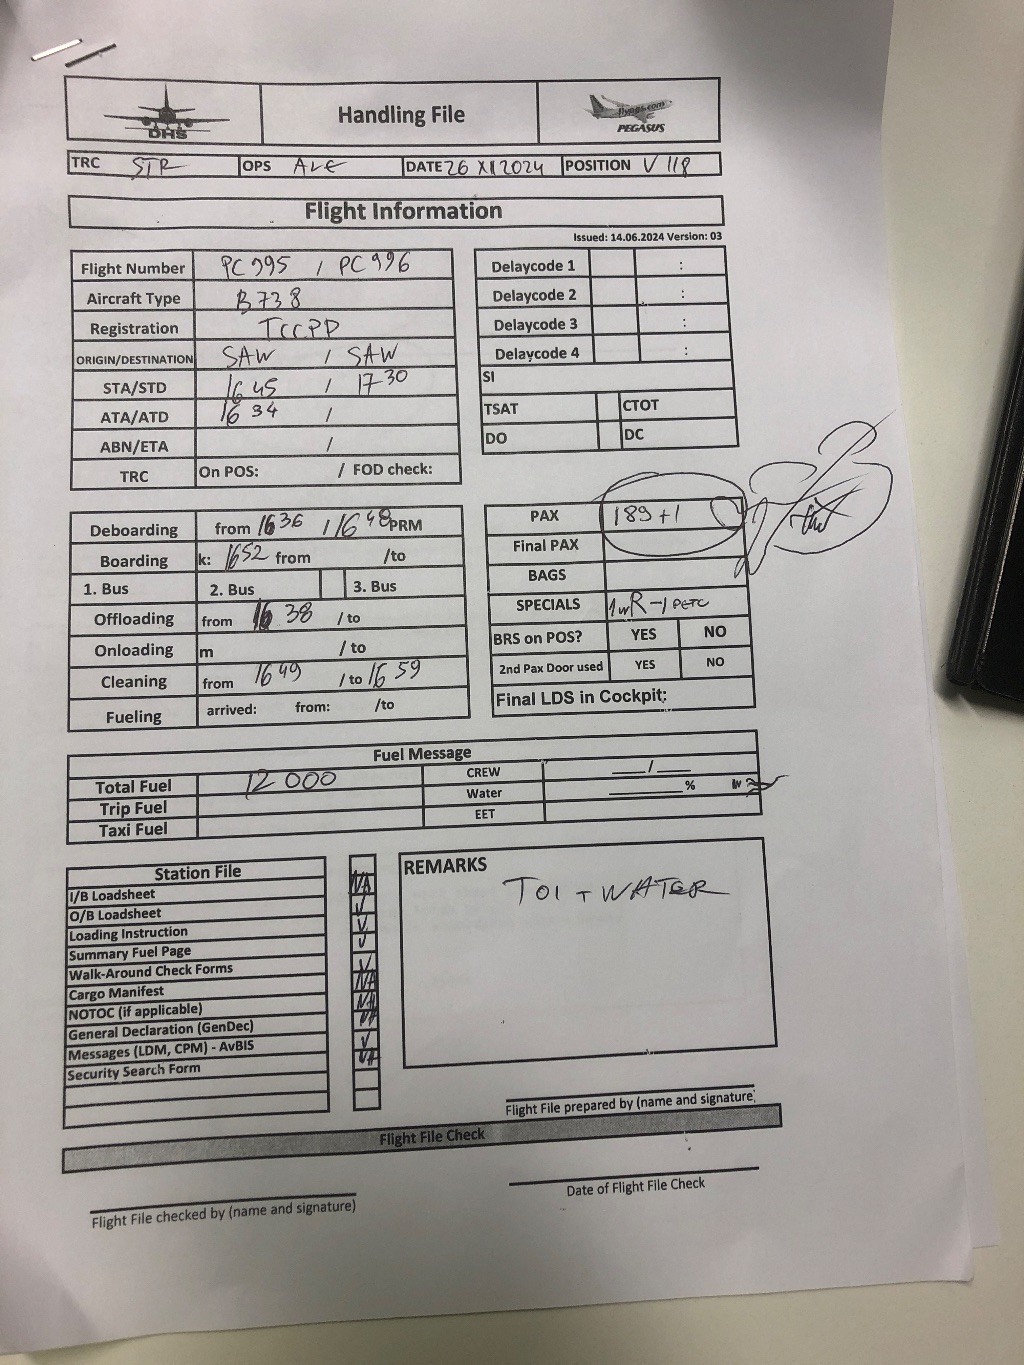 DHS
Handling File
flypgs.com
PEGASUS
TRC STR OPS ALE DATE 26 XII 2024 POSITION V 118
Flight Information
Issued: 14.06.2024 Version: 03
Flight Number PC 995 / PC 996
Aircraft Type B738
Registration TCCPD
ORIGIN/DESTINATION SAW / SAW
STA/STD 16 45 / 17 30
ATA/ATD 16 34 /
ABN/ETA /
TRC On POS: / FOD check:
Delaycode 1 :
Delaycode 2 :
Delaycode 3 :
Delaycode 4 :
SI
TSAT CTOT
DO DC
Deboarding from 16 36 / 16 48 PRM
Boarding k: 1652 from /to
1. Bus 2. Bus 3. Bus
Offloading from 16 38 / to
Onloading m / to
Cleaning from 16 49 / to 16 59
Fueling arrived: from: /to
PAX 189+1
Final PAX
BAGS
SPECIALS 1WR-1 PETC
BRS on POS? YES NO
2nd Pax Door used YES NO
Final LDS in Cockpit:
Fuel Message
Total Fuel 12 000 CREW ___/___
Trip Fuel Water ______%
Taxi Fuel EET
Station File
I/B Loadsheet NA
O/B Loadsheet V
Loading Instruction V
Summary Fuel Page V
Walk-Around Check Forms V
Cargo Manifest NA
NOTOC (if applicable) NA
General Declaration (GenDec) NA
Messages (LDM, CPM) - AvBIS V
Security Search Form NA
REMARKS
TOI + WATER
Flight File prepared by (name and signature)
Flight File Check
Flight File checked by (name and signature)
Date of Flight File Check